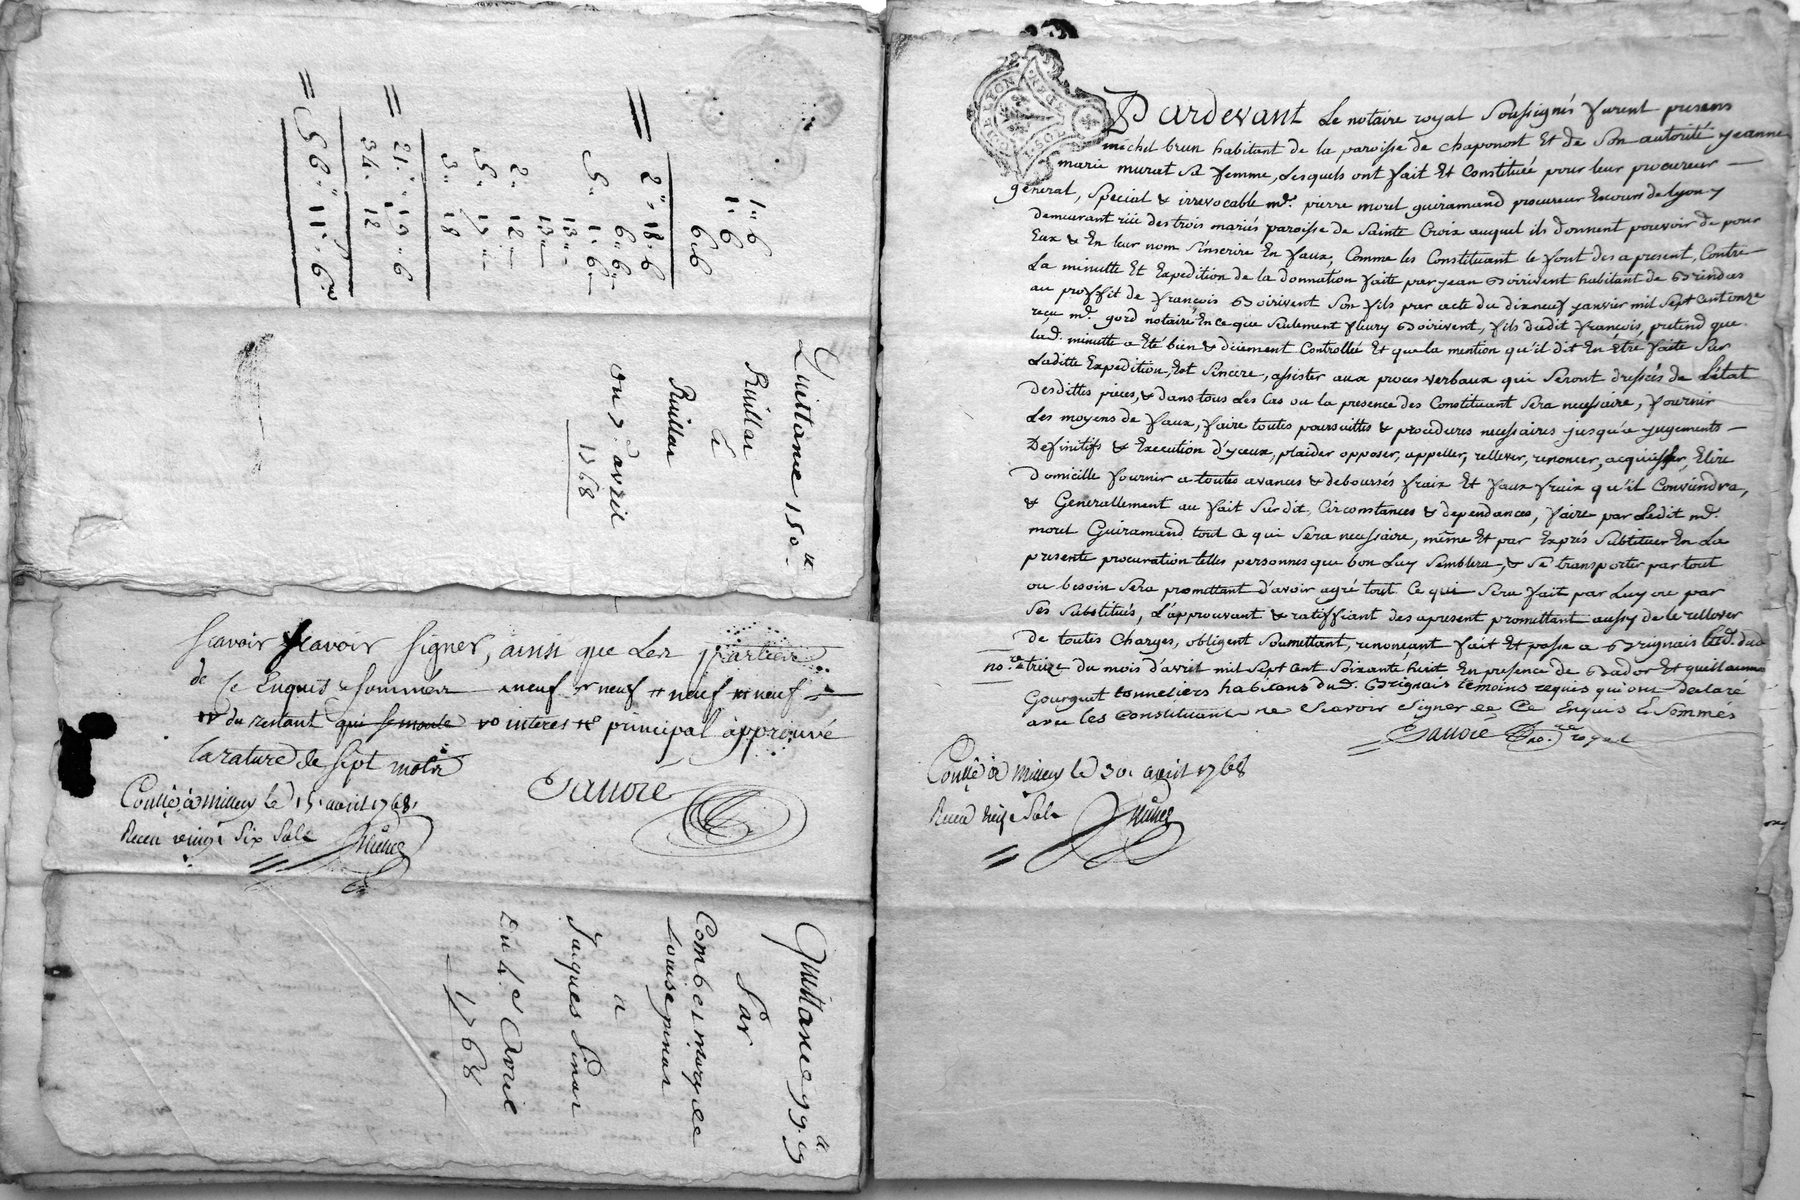 1" 6
1" 6
6" 6
2" 18" 6
6" 6
5" 1" 6
13"
13"
2" 12"
5" 17"
3" 18
21" 19" 6
34" 12
56" 11" 6
Quittance 150
Ruillat
à
Ruillat
du 7 avril
1768
scavoir scavoir signer, ainsi que les parties
de ce Enquis & sommés neuf neuf neuf neuf
du restant qui se monte interes principal approuvé
la rature de sept mots
Sauoie
Conllé a millery le 15 avril 1768
Receu vingt six sols
Quittance 99
Par
Combet marye &
Louise pinat
a
Jacques Pinat
du 4 avril
1768
DE LYON
Pardevant Le notaire royal Soussignés furent presens
michel brun habitant de la paroisse de chaponost Et de Son autorité jeanne
marie murat sa femme, Lesquels ont fait Et Constitué pour leur procureur
général, Special & irrevocable me. pierre morel guiramand procureur Encours de lyon y
demeurant rüe des trois mariés paroisse de Sainte Croix auquel ils donnent pouvoir de pour
Eux & En leur nom S'inscrire En faux, Comme les Constituant le font des a present, Contre
La minutte Et Expedition de la donnation faite par jean Boirivent habitant de Brindas
au proffit de françois Boirivent Son fils par acte du dixneuf janvier mil Sept Cent onze
reçu me. gord notaire En ce que Seulement fleury Boirivent, fils dudit françois, pretend que
lad. minutte a Eté bien & düement Controllée Et que la mention qu'il dit En Etre faite Sur
Laditte Expedition, Est Sincere, assister aux proces verbaux qui Seront dressés de L'état
desdittes pieces, & dans tous Les Cas ou la presence des Constituant Sera necessaire, fournir
Les moyens de faux, faire toutes poursuittes & procedures necessaires jusqu'a jugements
Definitifs & Execution d'yceux, plaider opposer, appeller, rellever, renoncer, acquiesser, Elire
domicille fournir a toutes avances & deboursés fraix Et faux fraix qu'il Conviendra,
& Generallement au fait Surdit, Circonstances & dependances, faire par Ledit me.
morel Guiramand tout Ce qui Sera necessaire, même Et par Exprés Subtituer En La
presente procuration telles personnes que bon Luy Semblera, & Se transporter par tout
ou besoin Sera promettant d'avoir agré tout Ce qui Sera fait par Luy ou par
Ses Substitués, L'approuvant & ratiffiant des apresent promettant aussy de le rellever
de toutes Charges, obligent Soumettant, renoncant fait Et passé a Brignais Etude dud
no.re Le treize du mois d'avril mil Sept Cent Soixante huit En presence de Bador Et guillaume
Gourguet tonneliers habitans dud. Brignais temoins requis qui ont declaré
avec les Constituant ne Scavoir Signer de Ce Enquis & Sommés
Sauoie no.re royal
Conllé a millery le 30 avril 1768
Receu treize Sols